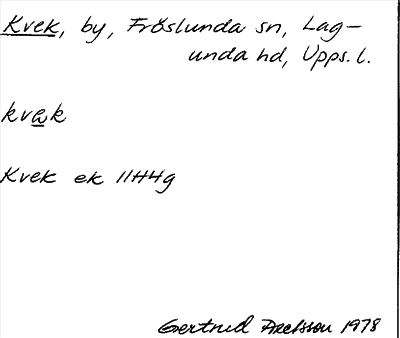 Kvek, by, Fröslunda sn, Lag-
unda hd, Upps. l.
kvek
Kvek ek 11H4g
Gertrud Axelsson 1978